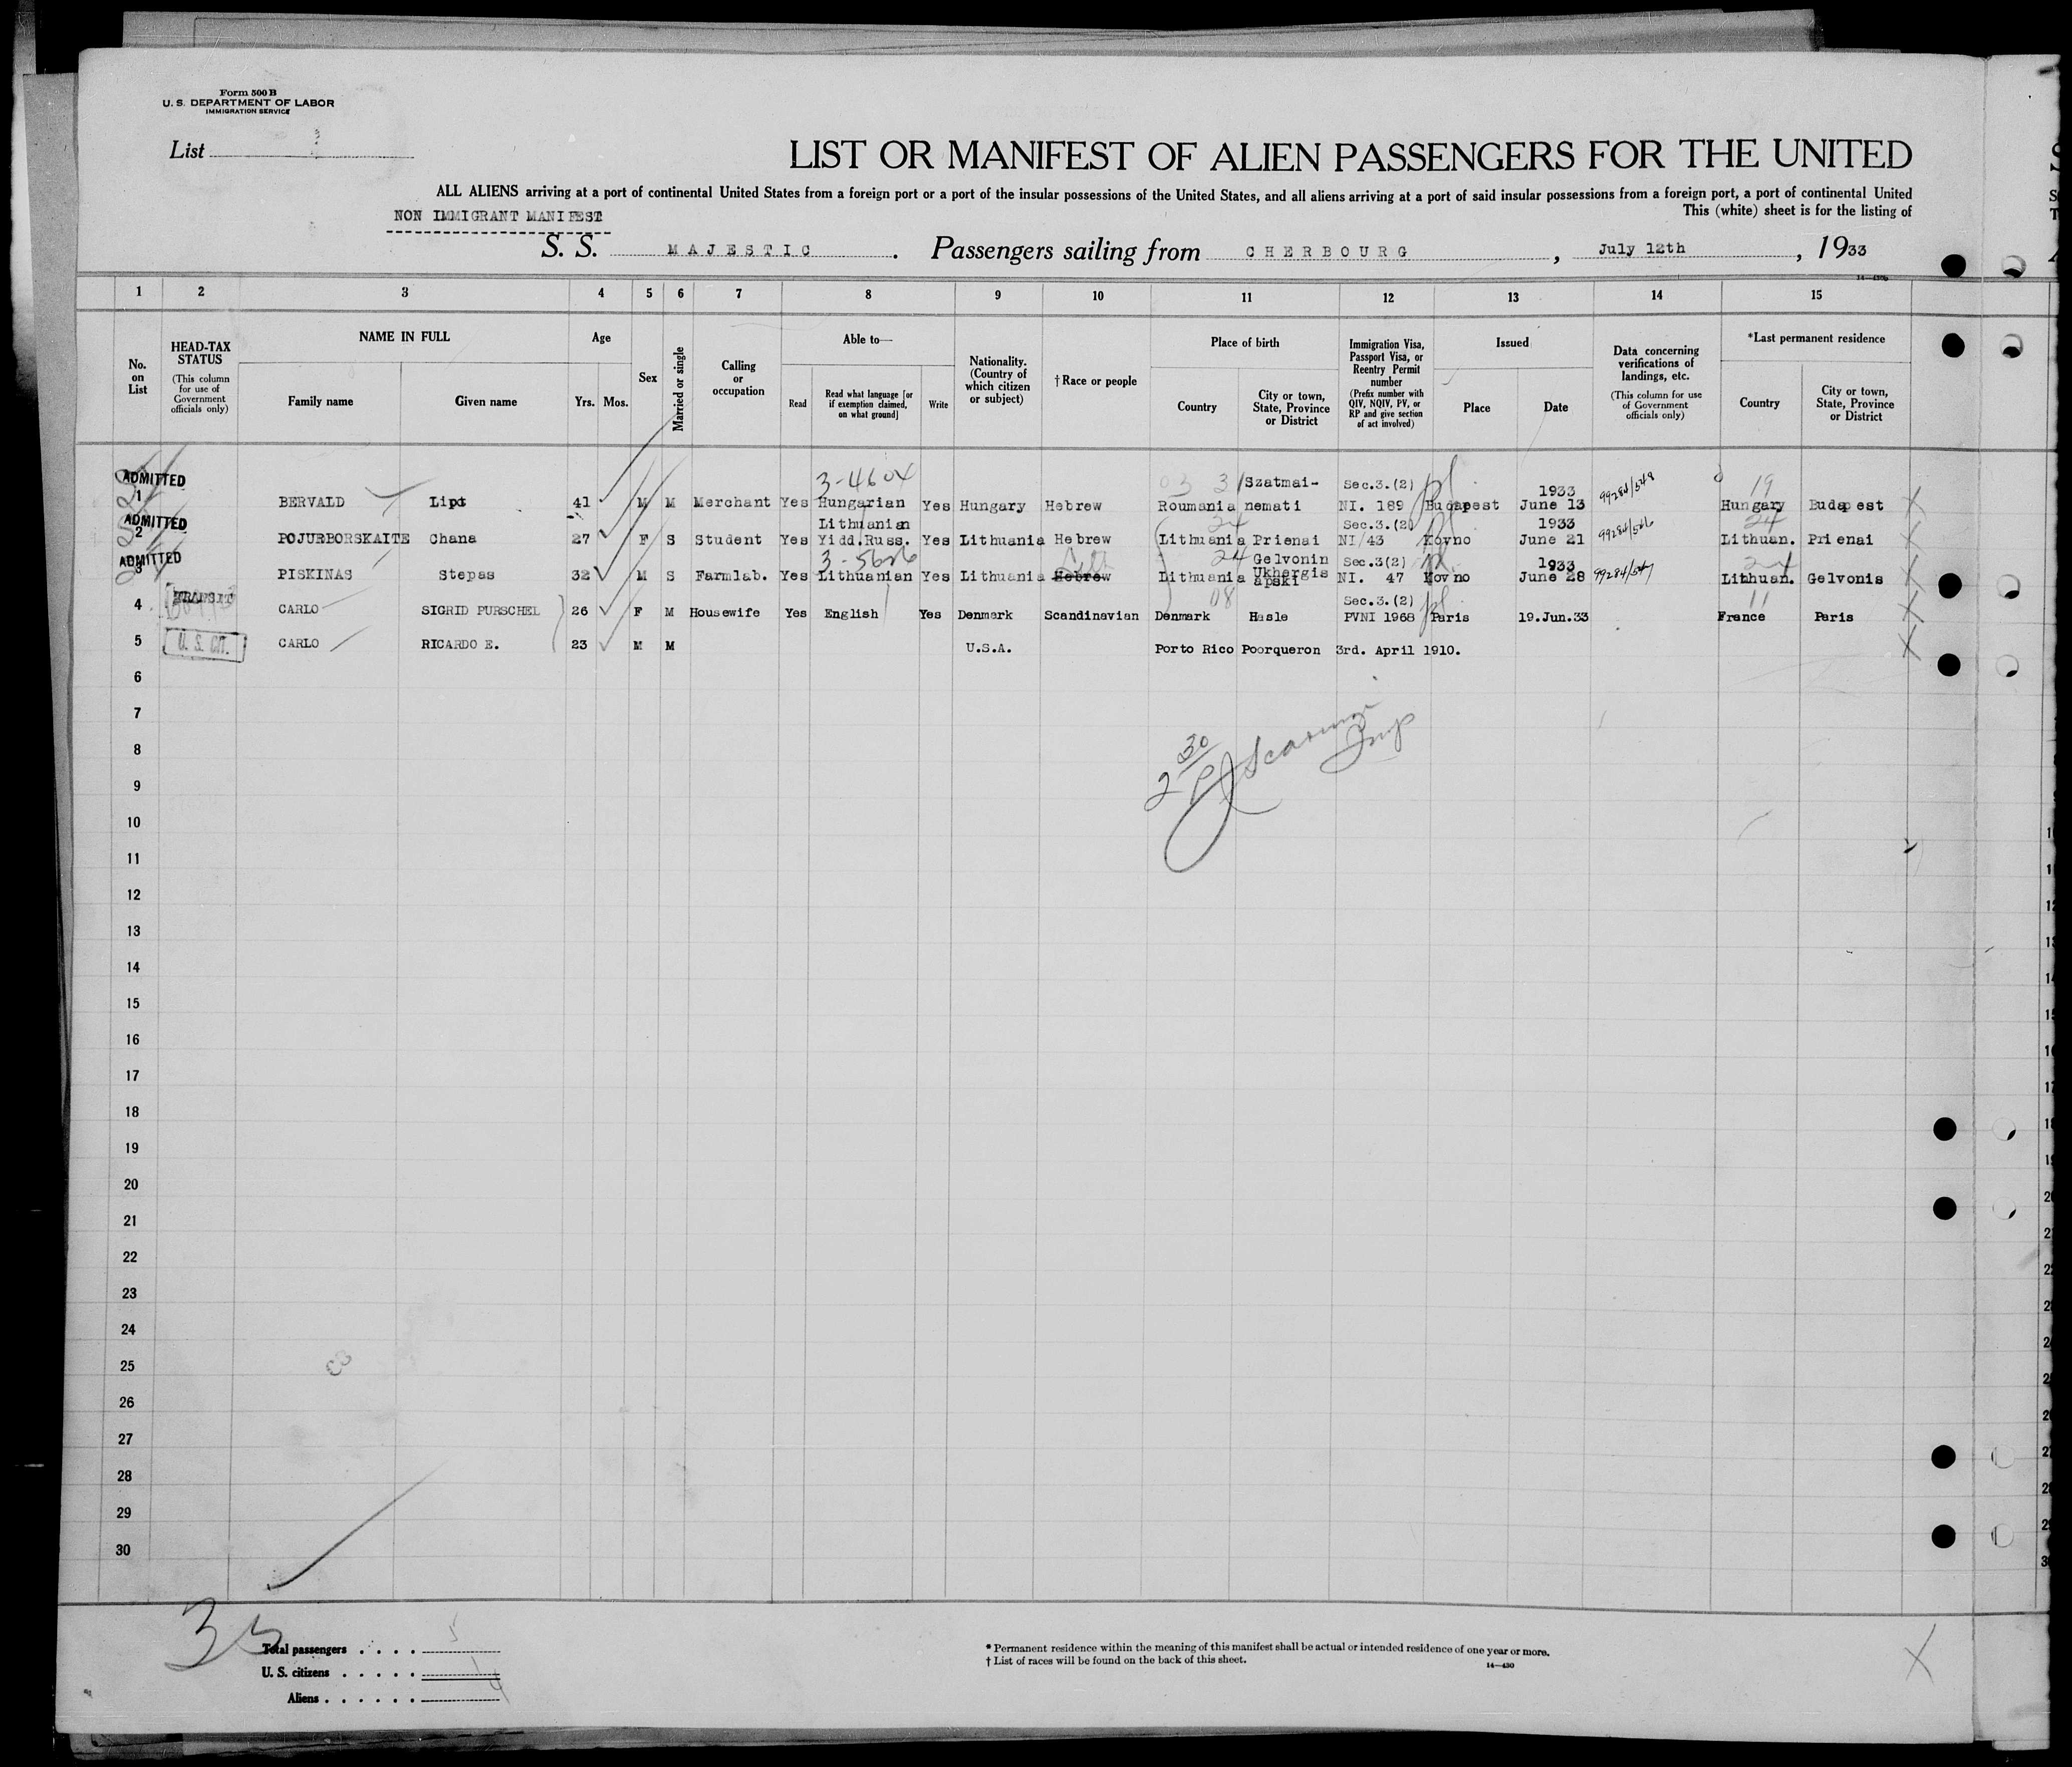 Form 500 B
U. S. DEPARTMENT OF LABOR
IMMIGRATION SERVICE
List
LIST OR MANIFEST OF ALIEN PASSENGERS FOR THE UNITED
ALL ALIENS arriving at a port of continental United States from a foreign port or a port of the insular possessions of the United States, and all aliens arriving at a port of said insular possessions from a foreign port, a port of continental United
This (white) sheet is for the listing of
NON IMMIGRANT MANIFEST
S. S. MAJESTIC. Passengers sailing from CHERBOURG, July 12th, 1933
1 2 3 4 5 6 7 8 9 10 11 12 13 14 15
No. on List
HEAD-TAX STATUS
(This column for use of Government officials only)
NAME IN FULL
Family name Given name
Age
Yrs. Mos.
Sex
Married or single
Calling or occupation
Able to—
Read
Read what language [or if exemption claimed, on what ground]
Write
Nationality. (Country of which citizen or subject)
†Race or people
Place of birth
Country
City or town, State, Province or District
Immigration Visa, Passport Visa, or Reentry Permit number
(Prefix number with QIV, NQIV, PV, or RP and give section of act involved)
Issued
Place Date
Data concerning verifications of landings, etc.
(This column for use of Government officials only)
*Last permanent residence
Country
City or town, State, Province or District
ADMITTED 3-4604 Szatmai- Sec.3.(2) 1933 99284/548 19
1 BERVALD Lipt 41 M M Merchant Yes Hungarian Yes Hungary Hebrew Roumania nemati NI. 189 Budapest June 13 Hungary Budapest
ADMITTED Lithuanian 24 Sec.3.(2) 1933 99284/546 24
2 POJURBORSKAITE Chana 27 F S Student Yes Yidd.Russ. Yes Lithuania Hebrew Lithuania Prienai NI/43 Kovno June 21 Lithuan. Prienai
ADMITTED 3-5626 Lith 24 Gelvonin Sec.3(2) 1933 99284/547 24
3 PISKINAS Stepas 32 M S Farmlab. Yes Lithuanian Yes Lithuania Hebrew Lithuania Ukhergis apski NI. 47 Kovno June 28 Lithuan. Gelvonis
TRANSIT 08 Sec.3.(2) 11
4 CARLO SIGRID PURSCHEL 26 F M Housewife Yes English Yes Denmark Scandinavian Denmark Hasle PVNI 1968 Paris 19.Jun.33 France Paris
5 U. S. CIT. CARLO RICARDO E. 23 M M U.S.A. Porto Rico Poorqueron 3rd. April 1910.
6
7
8
2 30
9
10
11
12
13
14
15
16
17
18
19
20
21
22
23
24
25
26
27
28
29
30
Total passengers 5
U. S. citizens 1
Aliens 4
* Permanent residence within the meaning of this manifest shall be actual or intended residence of one year or more.
† List of races will be found on the back of this sheet.
14—430